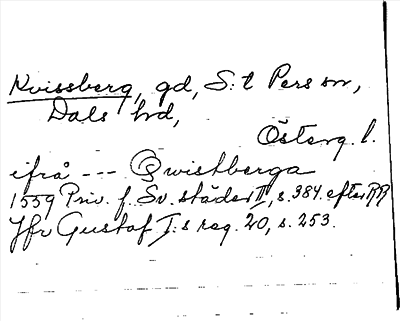 Kvissberg, gd, S:t Pers sn,
Dals hd,
Österg. l.
ifrå --- Qwistberga
1559 Priv. f. Sv. städer II, s. 384. efter RR
Jfr Gustaf I:s reg. 20, s. 253.